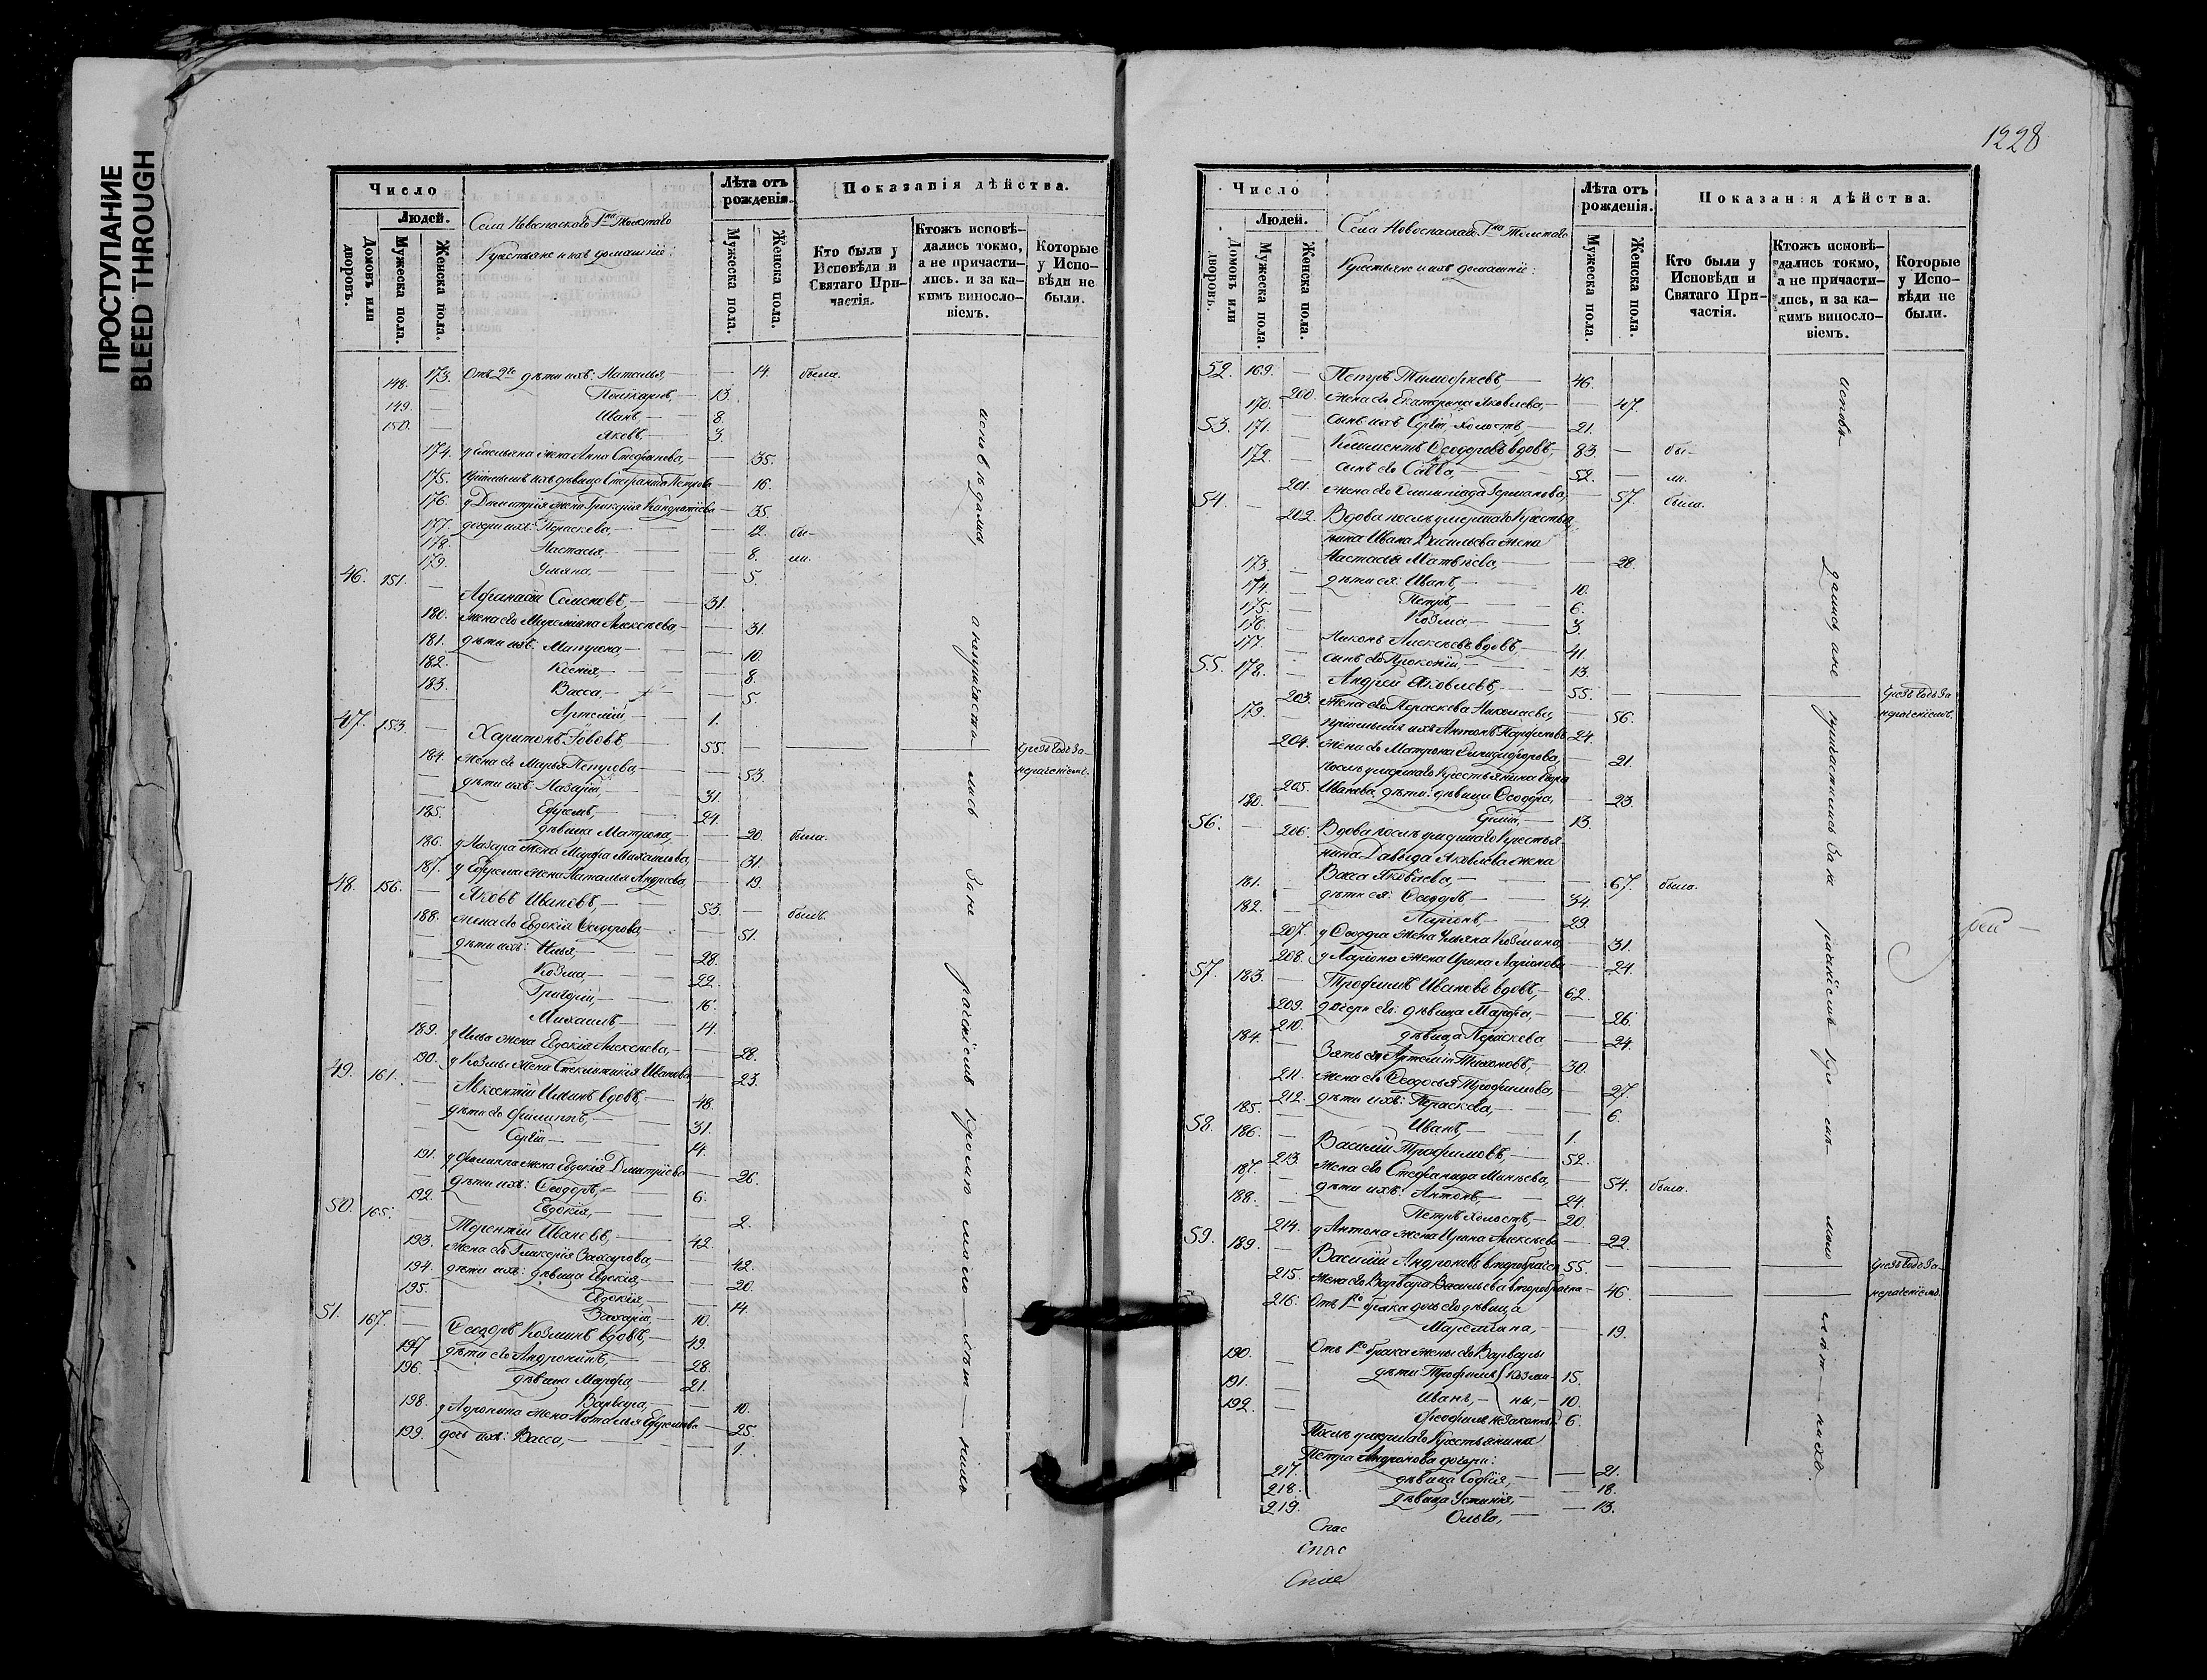 ПРОСТУПАНИЕ
BLEED THROUGH
Число
Людей.
Домовъ или дворовъ.
Мужеска пола.
Женска пола.
Села Новоспаскаго Гна Толстаго
Крестьяне и ихъ домашніе:
Лѣта отъ рожденія.
Мужеска пола.
Женска пола.
Показанія дѣйства.
Кто были у Исповѣди и Святаго Причастія.
Ктожъ исповѣдались токмо, а не причастились. и за какимъ винословіемъ.
Которые у Исповѣди не были.
173. Отъ 2го дѣти ихъ: Наталья, — 14. была.
148. Поликарпъ, — 13.
149. Иванъ, — 8.
150. Яковъ, — 3.
174. жена Анна Стефанова, — 35.
175. 16.
176. у Димитрія жена Кондратіева — 35.
177. дочери ихъ: Параскева, — 12. бы-
178. Настасья, — 8. ли.
179. Ульяна, — 5.
46. 151. Афанасій Семеновъ, — 31.
180. жена его Алексѣева, — 31.
181. дѣти ихъ: Матрона, — 10.
182. Ксенія, — 8.
183. Васса, — 5.
Артемій, — 1.
47. 153. Харитонъ Іововъ, — 55. — чрезъ годъ за
184. жена его Марья Петрова, — 53. нераченіемъ.
дѣти ихъ: Назарій, — 31.
Ефремъ, — 21.
185. дѣвица Матрона, — 20. была.
186. у Назара жена Марфа Михаилова, — 31.
187. у Ефрема жена Наталья Андреева, — 19.
48. 156. Яковъ Ивановъ, — 53. — былъ.
188. жена его Евдокія Ѳедорова, — 51.
дѣти ихъ: Илья, — 28.
Козма, — 22.
Григорій, — 16.
Михаилъ, — 14.
189. у Ильи жена Евдокія Алексѣева, — 28.
190. у Козмы жена Иванова — 23.
49. 161. Авксентій Ильинъ вдовъ, — 48.
дѣти его Филиппъ, — 31.
Сергій — 14.
191. у Филиппа жена Евдокія Дмитріева — 26.
дѣти ихъ: Ѳеодоръ, — 6.
192. Евдокія, — 2.
50. 165. Терентій Ивановъ, — 42.
193. жена его Гликерія Захарова, — 42.
194. дѣти ихъ: дѣвица Евдокія, — 20.
195. Евдокія, — 14.
Захарій, — 10.
51. 167. Ѳеодоръ Козминъ вдовъ, — 49.
дѣти его Андроникъ, — 28.
197 дѣвица Марфа, — 21.
196. Варвара, — 10.
198. у Адроника жена Наталья Ефремова — 25.
199. дочь ихъ: Васса, — 1.
исповѣдались, а не причастились за не раченіемъ кромѣ мало лѣт нихъ
1228
Число
Людей.
Домовъ или дворовъ.
Мужеска пола.
Женска пола.
Села Новоспаскаго Гна Толстаго
Крестьяне и ихъ домашніе:
Лѣта отъ рожденія.
Мужеска пола.
Женска пола.
Показанія дѣйства.
Кто были у Исповѣди и Святаго Причастія.
Ктожъ исповѣдались токмо, а не причастились, и за какимъ винословіемъ.
Которые у Исповѣди не были.
52. 169. Петръ Тимофеевъ, — 46.
200. жена его Екатерина Яковлева, — 47.
170. сынъ ихъ Сергій холостъ, — 21.
53. 171. Климентъ Ѳеодоровъ вдовъ, — 83. — бы-
172. сынъ его Савва, — 52. — ли.
201. жена его Олимпіада Германова, — 57. была.
54. — 202. Вдова послѣ умершаго Крестья
нина Ивана Васильева жена
Настасья Матвѣева, — 28.
173. дѣти ея: Иванъ, — 10.
174. Петръ, — 6.
175. Козма, — 3.
176. Никонъ Алексѣевъ вдовъ, — 41.
177. сынъ его Прокопій, — 13.
55. 178. Андрей Яковлевъ, — 55. — чрезъ годъ за
203. жена его Параскева Николаева, — 56. нераченіемъ.
179. ихъ Антонъ 24.
204. жена его Матрона — 21.
послѣ умершаго Крестьянина Егора
205. Иванова дѣти: дѣвица Ѳеодора, — 23.
180. 13.
56. — 206. Вдова послѣ умершаго Крестья
нина Давыда Яковлева жена
Васса Яковлева, — 67. была.
181. дѣти ея: Ѳеодоръ — 34.
182. Ларіонъ, — 29.
207. у Ѳеодора жена Ульяна Козмина, — 31.
208. у Ларіона жена Ирина Ларіонова — 24.
57. 183. Трофимъ Ивановъ вдовъ, — 62.
209. дочери его: дѣвица Марфа, — 26.
210. дѣвица Параскева 24.
184. Зять его Артемій Тихоновъ, — 30.
211. жена его Ѳеодосья Трофимова, — 27.
212. дѣти ихъ: Параскева, — 6.
185. Иванъ, — 1.
58. 186. Василій Трофимовъ, — 52.
213. жена его Стефанида Минѣева, — 54. была.
187. дѣти ихъ: Антонъ, — 24.
188. Петръ холостъ, — 20.
214. у Антона жена Ирина Алексѣева — 22.
59. 189. Василій Андроновъ второбрачен 55. — чрезъ годъ за-
215. жена его Варвара Васильева второбрачна — 46. — нераченіемъ.
216. Отъ 1го брака дочь его дѣвица
Маремьяна, — 19.
Отъ 1го брака жены его Варвары
190. дѣти Трофимъ Козми- 15.
191. Иванъ, — ны, — 10.
192. незаконный 6.
Послѣ умершаго Крестьянина
Петра Андронова дочери:
217. дѣвица Софія, — 21.
218. дѣвица Устинія, — 18.
219. Ольга, — 13.
исповѣ- дались, а не причастились за не раченіемъ кро мѣ- мало лѣт нихъ
Спас
Спас
Спас